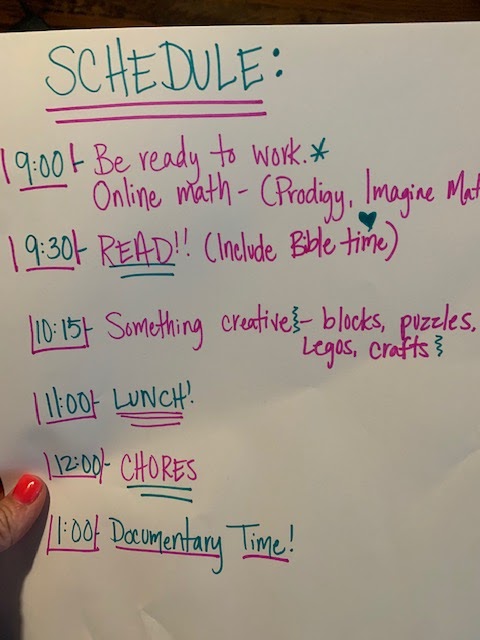 SCHEDULE:
9:00 - Be ready to work.*
Online math - (Prodigy, Imagine Mat
9:30 - READ!! (Include Bible time)
10:15 - Something creative - blocks, puzzles,
Legos, crafts
11:00 - LUNCH!
12:00 - CHORES
1:00 - Documentary Time!